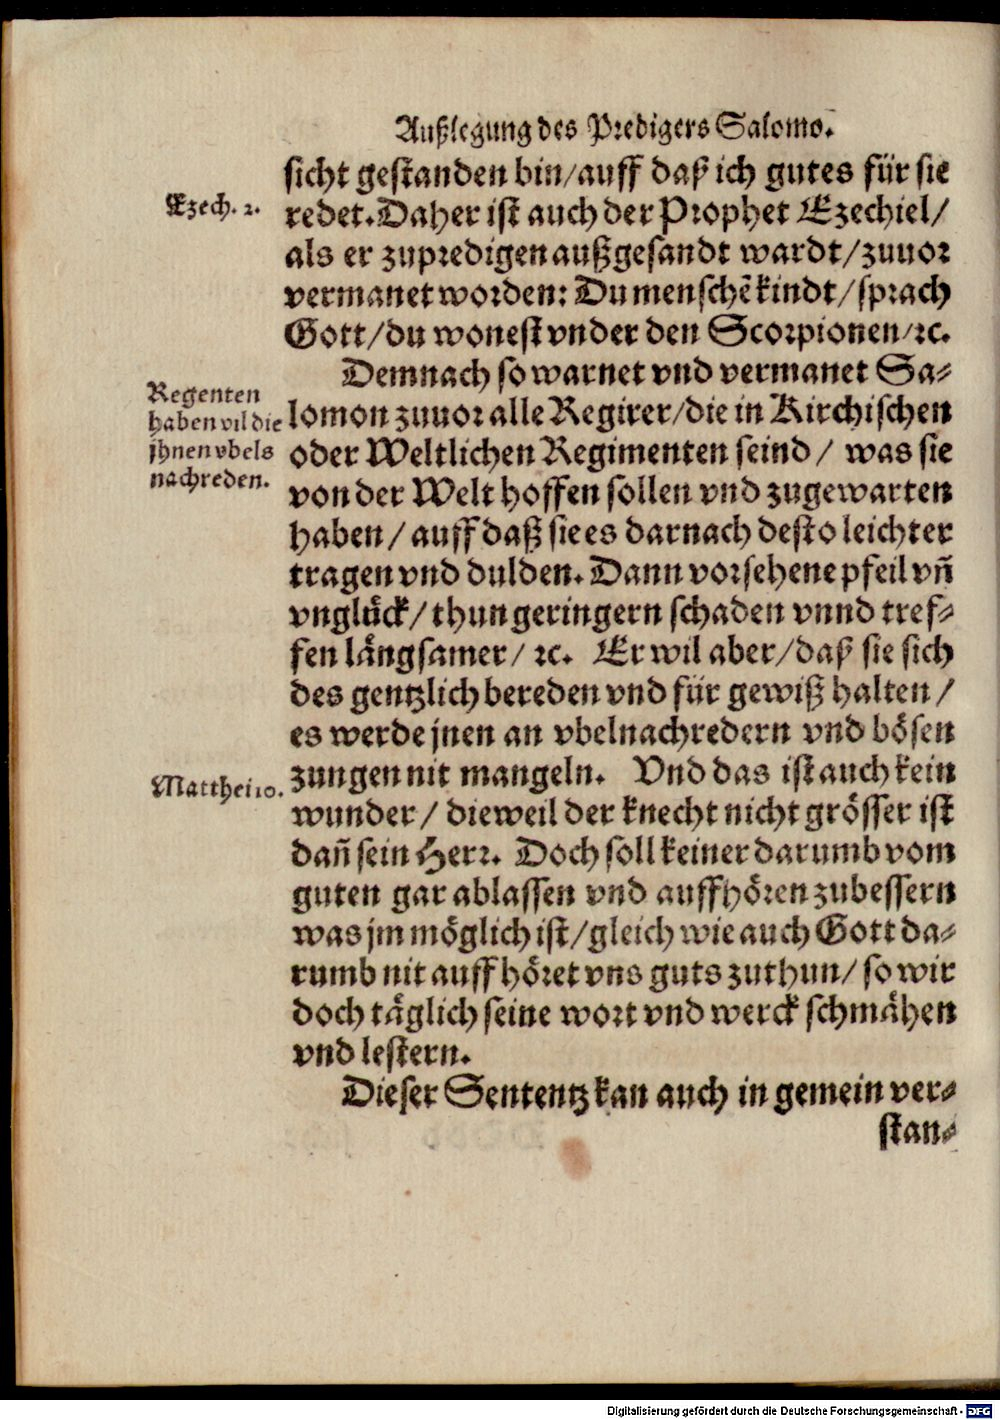 Außlegung des Predigers Salomo.
sicht gestanden bin/auff daß ich gutes für sie
Ezech. 2.
redet. Daher ist auch der Prophet Ezechiel/
als er zupredigen außgesandt wardt/zuuor
vermanet worden: Du menschē kindt/sprach
Gott/du wonest vnder den Scorpionen/ꝛc.
Demnach so warnet vnd vermanet Sa-
Regenten
haben vil die
jhnen vbels
nachreden.
lomon zuuor alle Regirer/die in Kirchischen
oder Weltlichen Regimenten seind/ was sie
von der Welt hoffen sollen vnd zugewarten
haben/ auff daß sie es darnach desto leichter
tragen vnd dulden. Dann vorsehene pfeil vñ
vnglück/ thun geringern schaden vnnd tref-
fen långsamer/ ꝛc. Er wil aber/daß sie sich
des gentzlich bereden vnd für gewiß halten/
es werde jnen an vbelnachredern vnd bösen
zungen nit mangeln. Vnd das ist auch kein
Matthei 10.
wunder/ dieweil der knecht nicht grösser ist
dañ sein Herr. Doch soll keiner darumb vom
guten gar ablassen vnd auffhören zubessern
was jm möglich ist/gleich wie auch Gott da-
rumb nit auffhöret vns guts zuthun/ so wir
doch täglich seine wort vnd werck schmähen
vnd lestern.
Dieser Sententz kan auch in gemein ver-
stan-
Digitalisierung gefördert durch die Deutsche Forschungsgemeinschaft - DFG